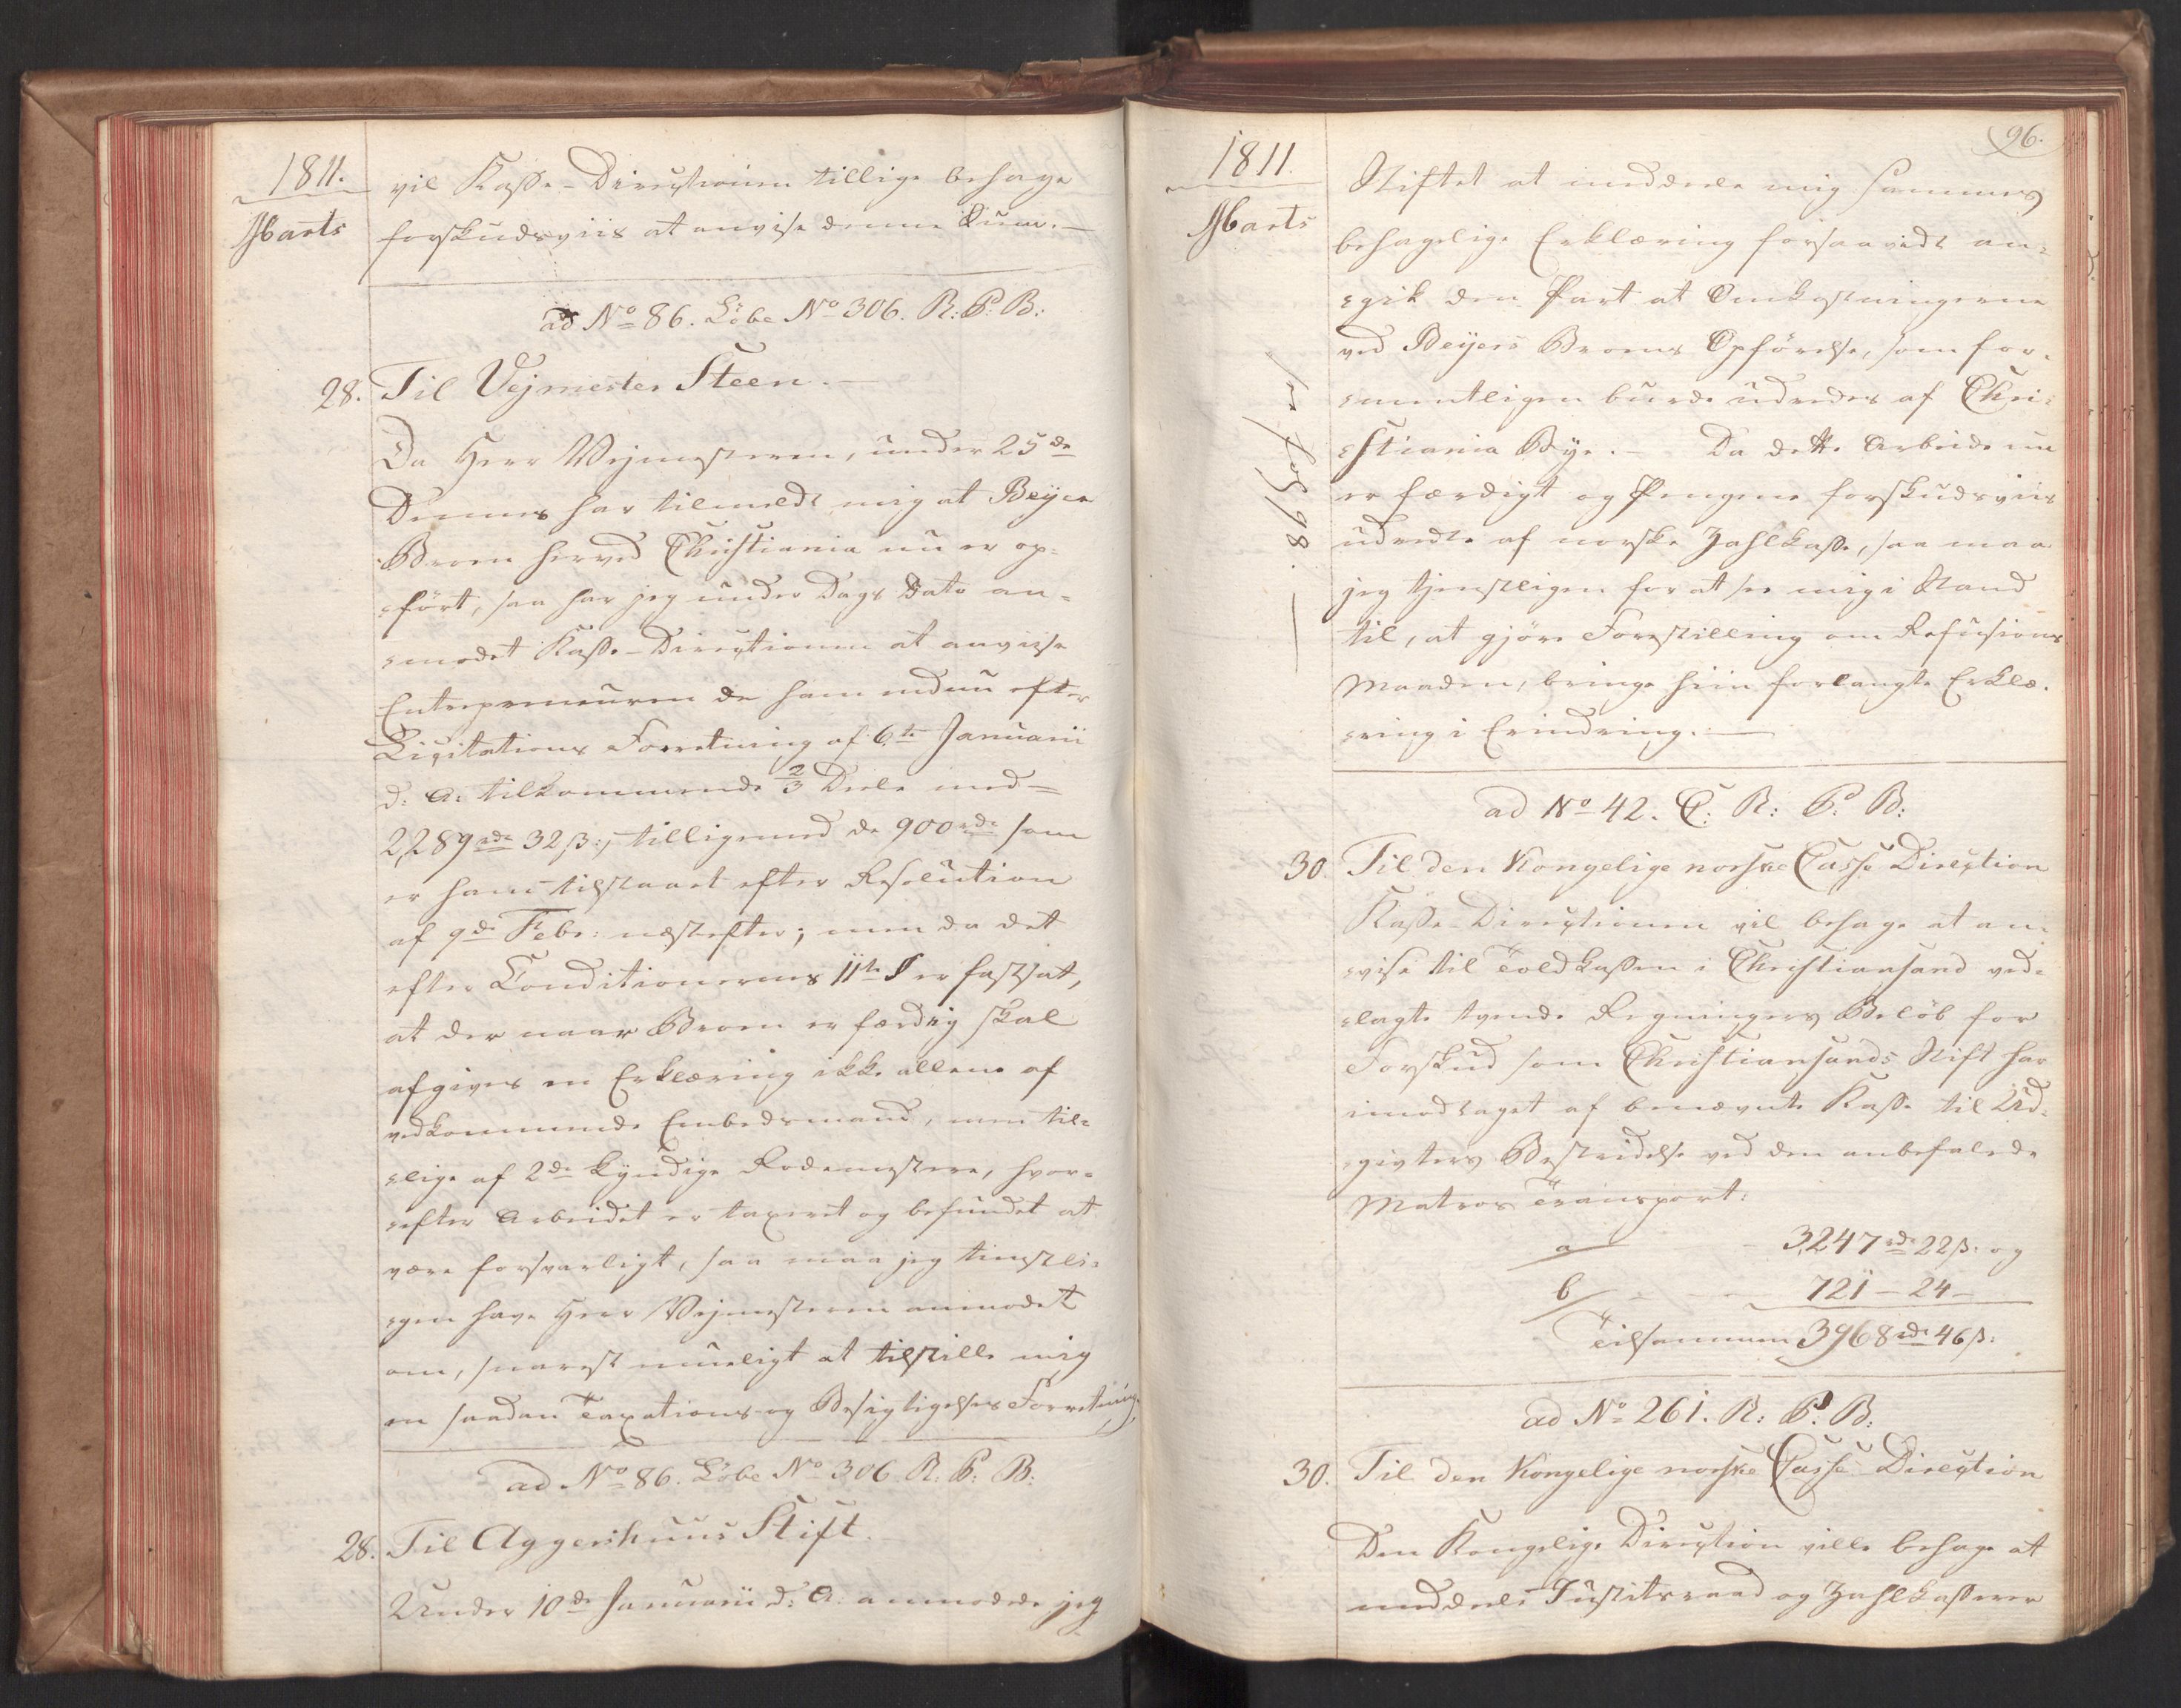 1811.
Marts
vil Kasse-Directionen tillige behage
forskudsviis at anvise denne Sum.—
ad No 86. Löbe No 306. R: P: B:
28. Til Vejmester Steen.—
Da Herr Vejmesteren, under 25de
Dennes har tilmeldt mig at Beyer
Broen herved Christiania nu er op-
ført, saa har jeg under Dags Dato an-
modet Kasse-Directionen at anvise
Entrepreneuren de ham endnu efter
Licitations Forretning af 6te Januarii
d: A: tilkommende 2/3 Deele med=
2,289 rdr 32 β:, tilligemed de 900 rdr som
er ham tilstaaet efter Resolution
af 9de Febr: næstefter; men da det
efter Conditionernes 11te § er fastsat,
at der naar Broen er færdig skal
afgives en Erklæring ikke allene af
vedkommende Embedsmand, men til-
lige af 2de kyndige Rodemestere, hvor-
efter Arbeidet er taxeret og befundet at
være forsvarligt, saa maa jeg tienstli-
gen have Herr Vejmesteren anmodet
om, snarest mueligt at tilstille mig
en saadan Taxations- og Besigtigelses Forretning
ad No 86. Löbe No 306. R. P: B:
28. Til Aggershuus Stift.
Under 10de Januarii d: A. anmodede jeg
96.
1811.
Marts
Stiftet at meddeele mig sammes
behagelige Erklæring forsaavidt an-
gik den Part at Omkostningerne
ved Beyers Broens Opförelse, som for-
mentligen burde udredes af Chri-
stiania Bye.— Da dette Arbeide nu
er færdigt og Pengene forskudsviis
udredte af norske Zahlkasse, saa maa
jeg tjenstligen for at see mig i Stand
til, at gjöre Forestilling om Refusions
Maaden, bringe hiin forlangte Erklæ-
ring i Erindring.—
see fol 98.—
ad No 42. C. R: P: B:
30. Til den Kongelige norske Casse Direction
Kasse-Directionen vil behage at an-
vise til Toldkassen i Christiansand ved-
lagte tvende Regningers Belöb for
Forskud som Christiansands Stift har
imodtaget af benævnte Kasse til Ud-
givters Bestridelse ved den anbefalede
Matros Transport:
a - 3,247 rdr 22 β. og
b - - 721 - 24 -
Tilsammen 3968 rdr 46 β:
ad No 261. R: P: B:
30. Til den Kongelige norske Casse Direction
Den Kongelige Direction ville behage at
meddeele Justitsraad og Zahlkasserer